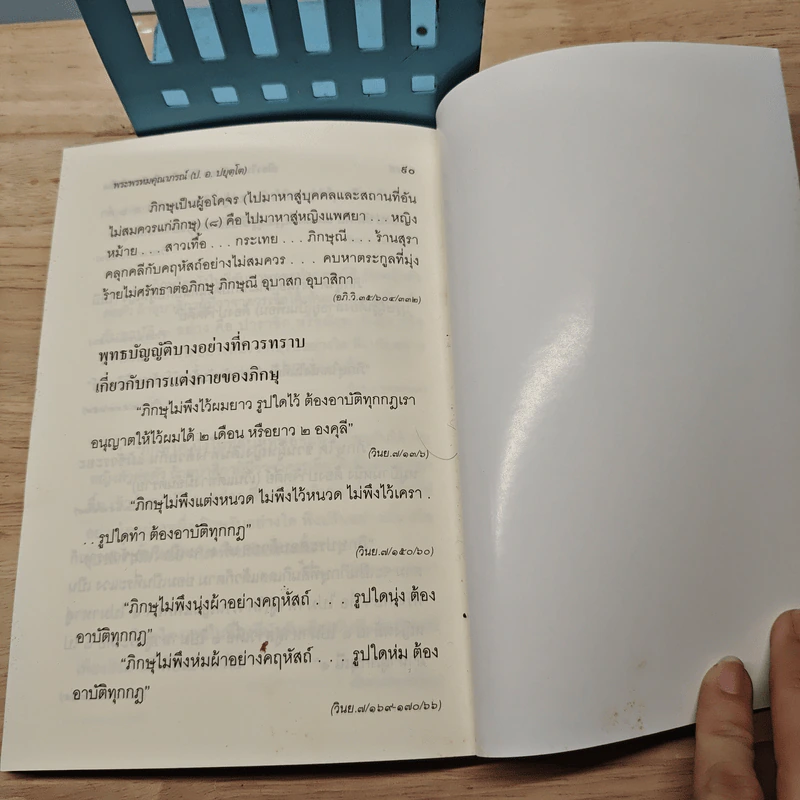 พระพรหมคุณาภรณ์ (ป. อ. ปยุตฺโต) ๙๐
ภิกษุเป็นผู้อโคจร (ไปมาหาสู่บุคคลและสถานที่อัน
ไม่สมควรแก่ภิกษุ) (๘) คือ ไปมาหาสู่หญิงแพศยา . . . หญิง
หม้าย . . . สาวเทื้อ . . . กระเทย . . . ภิกษุณี . . . ร้านสุรา
คลุกคลีกับคฤหัสถ์อย่างไม่สมควร . . . คบหาตระกูลที่มุ่ง
ร้ายไม่ศรัทธาต่อภิกษุ ภิกษุณี อุบาสก อุบาสิกา
(อภิ.วิ.๓๕/๖๐๔/๓๓๒)
พุทธบัญญัติบางอย่างที่ควรทราบ
เกี่ยวกับการแต่งกายของภิกษุ
“ภิกษุไม่พึงไว้ผมยาว รูปใดไว้ ต้องอาบัติทุกกฎเรา
อนุญาตให้ไว้ผมได้ ๒ เดือน หรือยาว ๒ องคุลี”
(วินย.๗/๑๓/๖)
“ภิกษุไม่พึงแต่งหนวด ไม่พึงไว้หนวด ไม่พึงไว้เครา .
. . รูปใดทำ ต้องอาบัติทุกกฎ”
(วินย.๗/๑๕๐/๖๐)
“ภิกษุไม่พึงนุ่งผ้าอย่างคฤหัสถ์ . . . รูปใดนุ่ง ต้อง
อาบัติทุกกฎ”
“ภิกษุไม่พึงห่มผ้าอย่างคฤหัสถ์ . . . รูปใดห่ม ต้อง
อาบัติทุกกฎ”
(วินย.๗/๑๖๙-๑๗๐/๖๖)